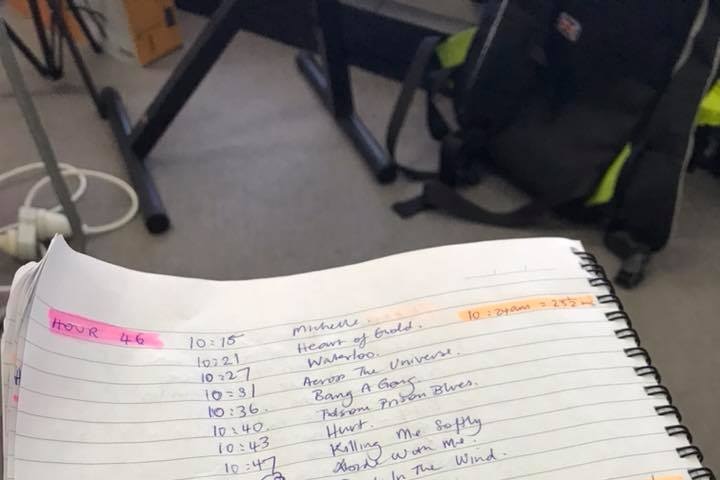 HOUR 46 10:15 Michelle. 10:24am = 255
10:21 Heart of Gold.
10:27 Waterloo.
10:31 Across The Universe.
10:36. Bang A Gong.
10:40. Folsom Prison Blues.
10:43 Hurt.
10:47 Killing Me Softly
Me.
In The Wind.